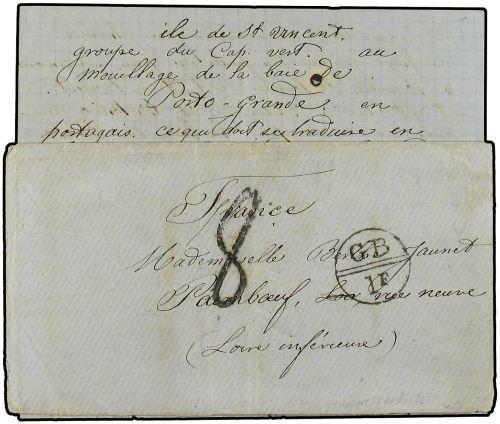 ile de St Vincent.
groupe du Cap. vert au
mouillage de la baie de
Porto-Grande. en
portugais. ce qui doit se traduire en
France
8
GB
1F
Mademoiselle Jaunet
Paimboeuf, Loir rue neuve
(Loire inférieure)